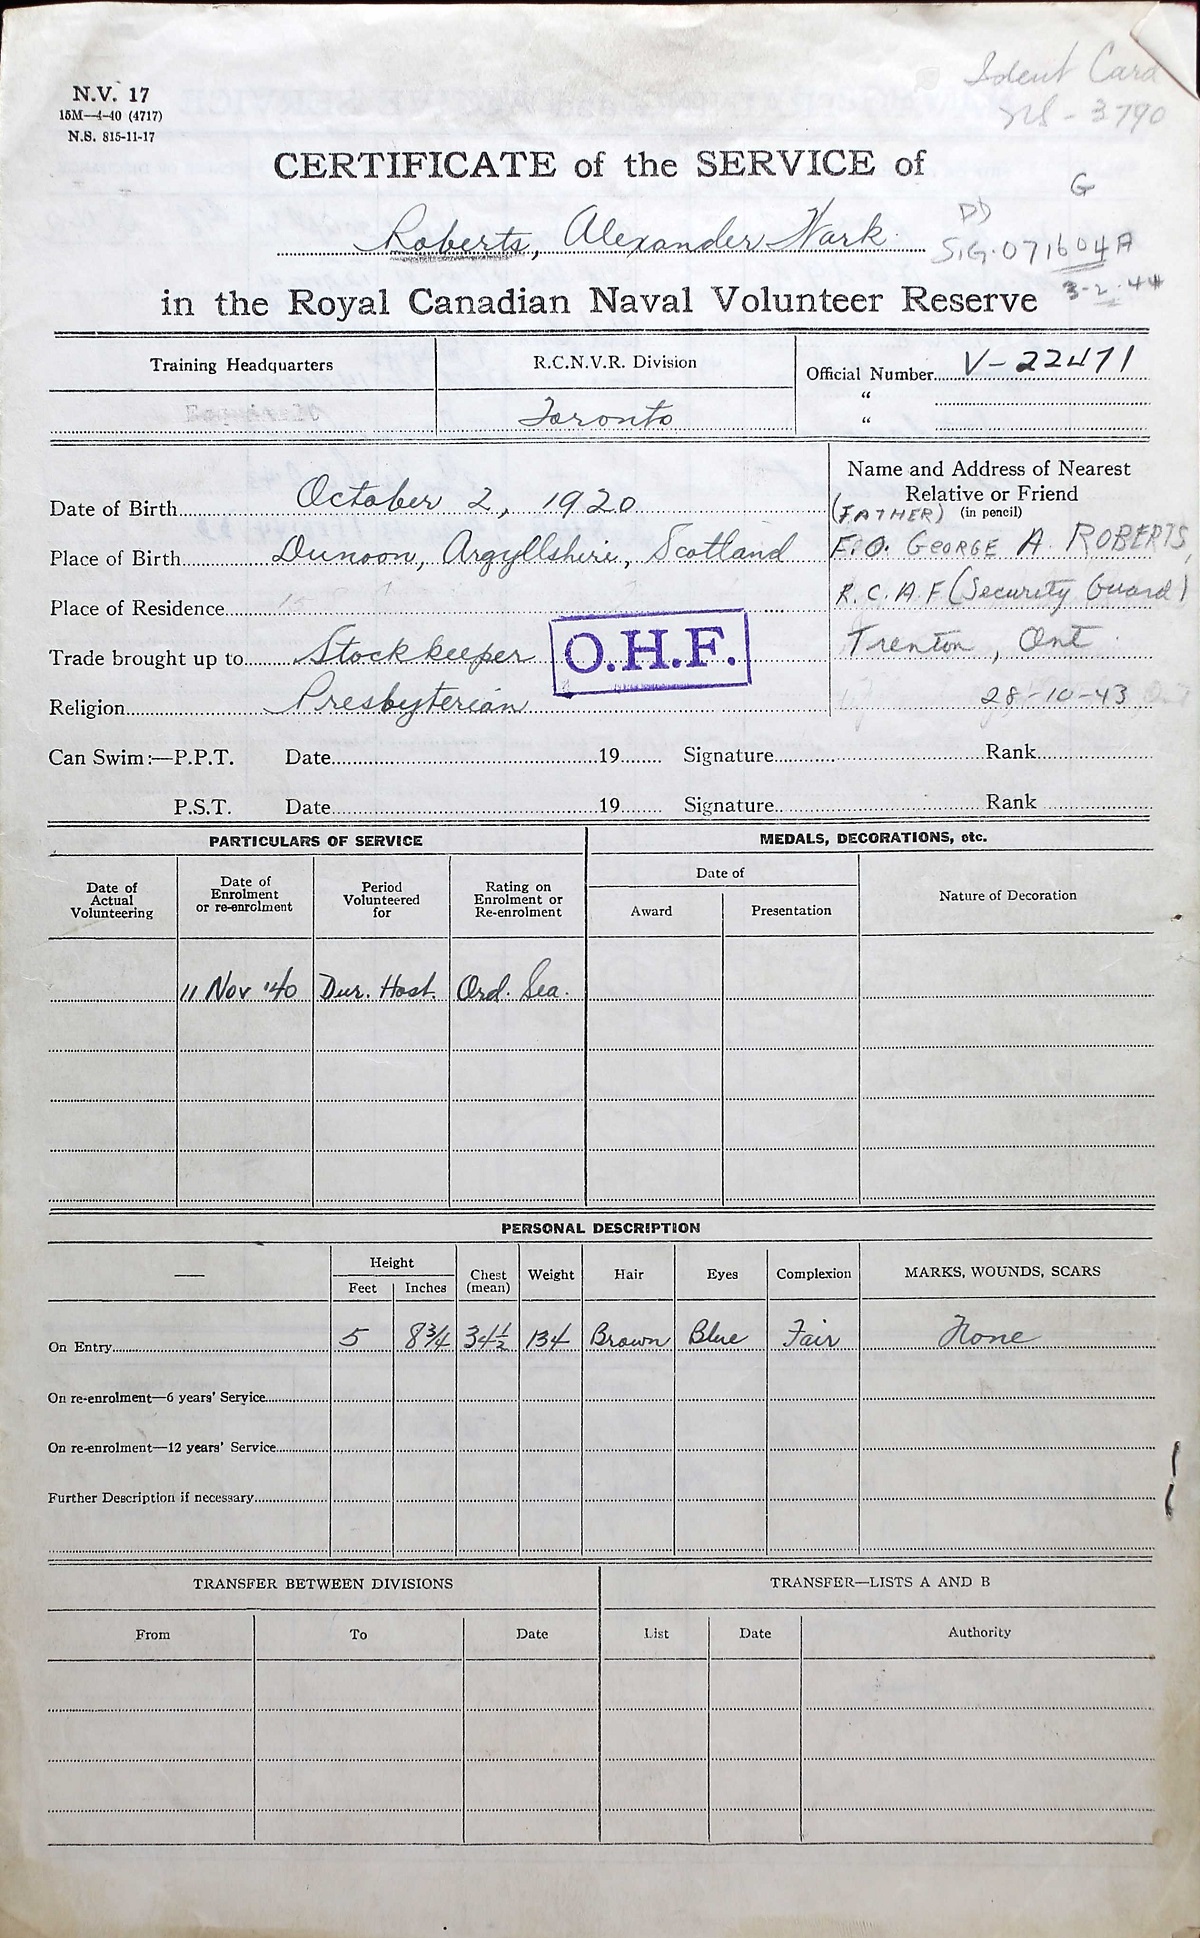 Ident Card
NS - 3790
N.V. 17
15M—4-40 (4717)
N.S. 815-11-17
CERTIFICATE of the SERVICE of
G
DD
Roberts, Alexander Wark
SIG. 071604A
3-2-44
in the Royal Canadian Naval Volunteer Reserve
Training Headquarters
R.C.N.V.R. Division
Toronto
Official Number V-22471
"
"
Date of Birth October 2, 1920
Place of Birth Dunoon, Argyllshire, Scotland
Place of Residence
Trade brought up to Stockkeeper
O.H.F.
Religion Presbyterian
Name and Address of Nearest
Relative or Friend
(FATHER) (in pencil)
F.O. GEORGE A. ROBERTS,
R.C.A.F (Security Guard)
Trenton, Ont
28-10-43
Can Swim:—P.P.T. Date 19 Signature Rank
P.S.T. Date 19 Signature Rank
PARTICULARS OF SERVICE
MEDALS, DECORATIONS, etc.
Date of
Actual
Volunteering
Date of
Enrolment
or re-enrolment
Period
Volunteered
for
Rating on
Enrolment or
Re-enrolment
Date of
Award
Presentation
Nature of Decoration
11 Nov '40 Dur. Host. Ord. Sea.
PERSONAL DESCRIPTION
—
Height
Feet
Inches
Chest
(mean)
Weight
Hair
Eyes
Complexion
MARKS, WOUNDS, SCARS
On Entry 5 8¾ 34½ 134 Brown Blue Fair None
On re-enrolment—6 years' Service
On re-enrolment—12 years' Service
Further Description if necessary
TRANSFER BETWEEN DIVISIONS
TRANSFER—LISTS A AND B
From
To
Date
List
Date
Authority